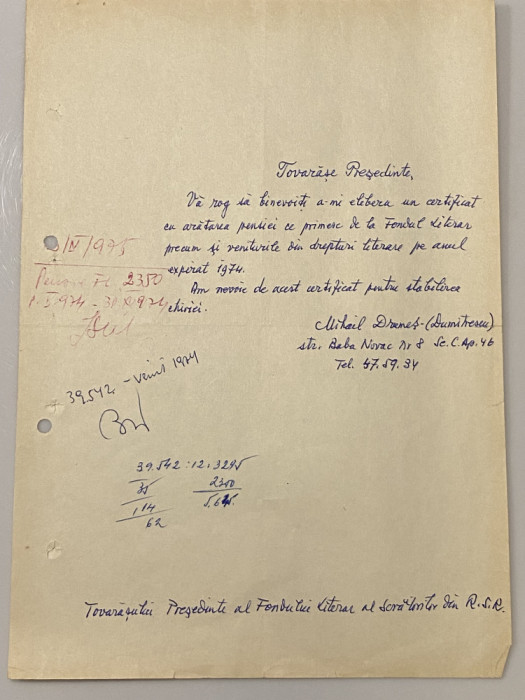 Tovarășe Președinte,
Vă rog să binevoiți a-mi elibera un certificat
cu arătarea pensiei ce primesc de la Fondul Literar
precum și veniturile din drepturi literare pe anul
expirat 1974.
Am nevoie de acest certificat pentru stabilirea
chiriei.
Mihail Drumeș-(Dumitrescu)
str. Baba Novac Nr 8 Sc. C. Ap. 46
Tel. 47.59.34
/IV/1975
Pensie FL 2350
1974 - 1974
39.542 - venit 1974
39.542 : 12 . 3295
35 2350
114 5.645
62
Tovarășului Președinte al Fondului Literar al Scriitorilor din R.S.R.